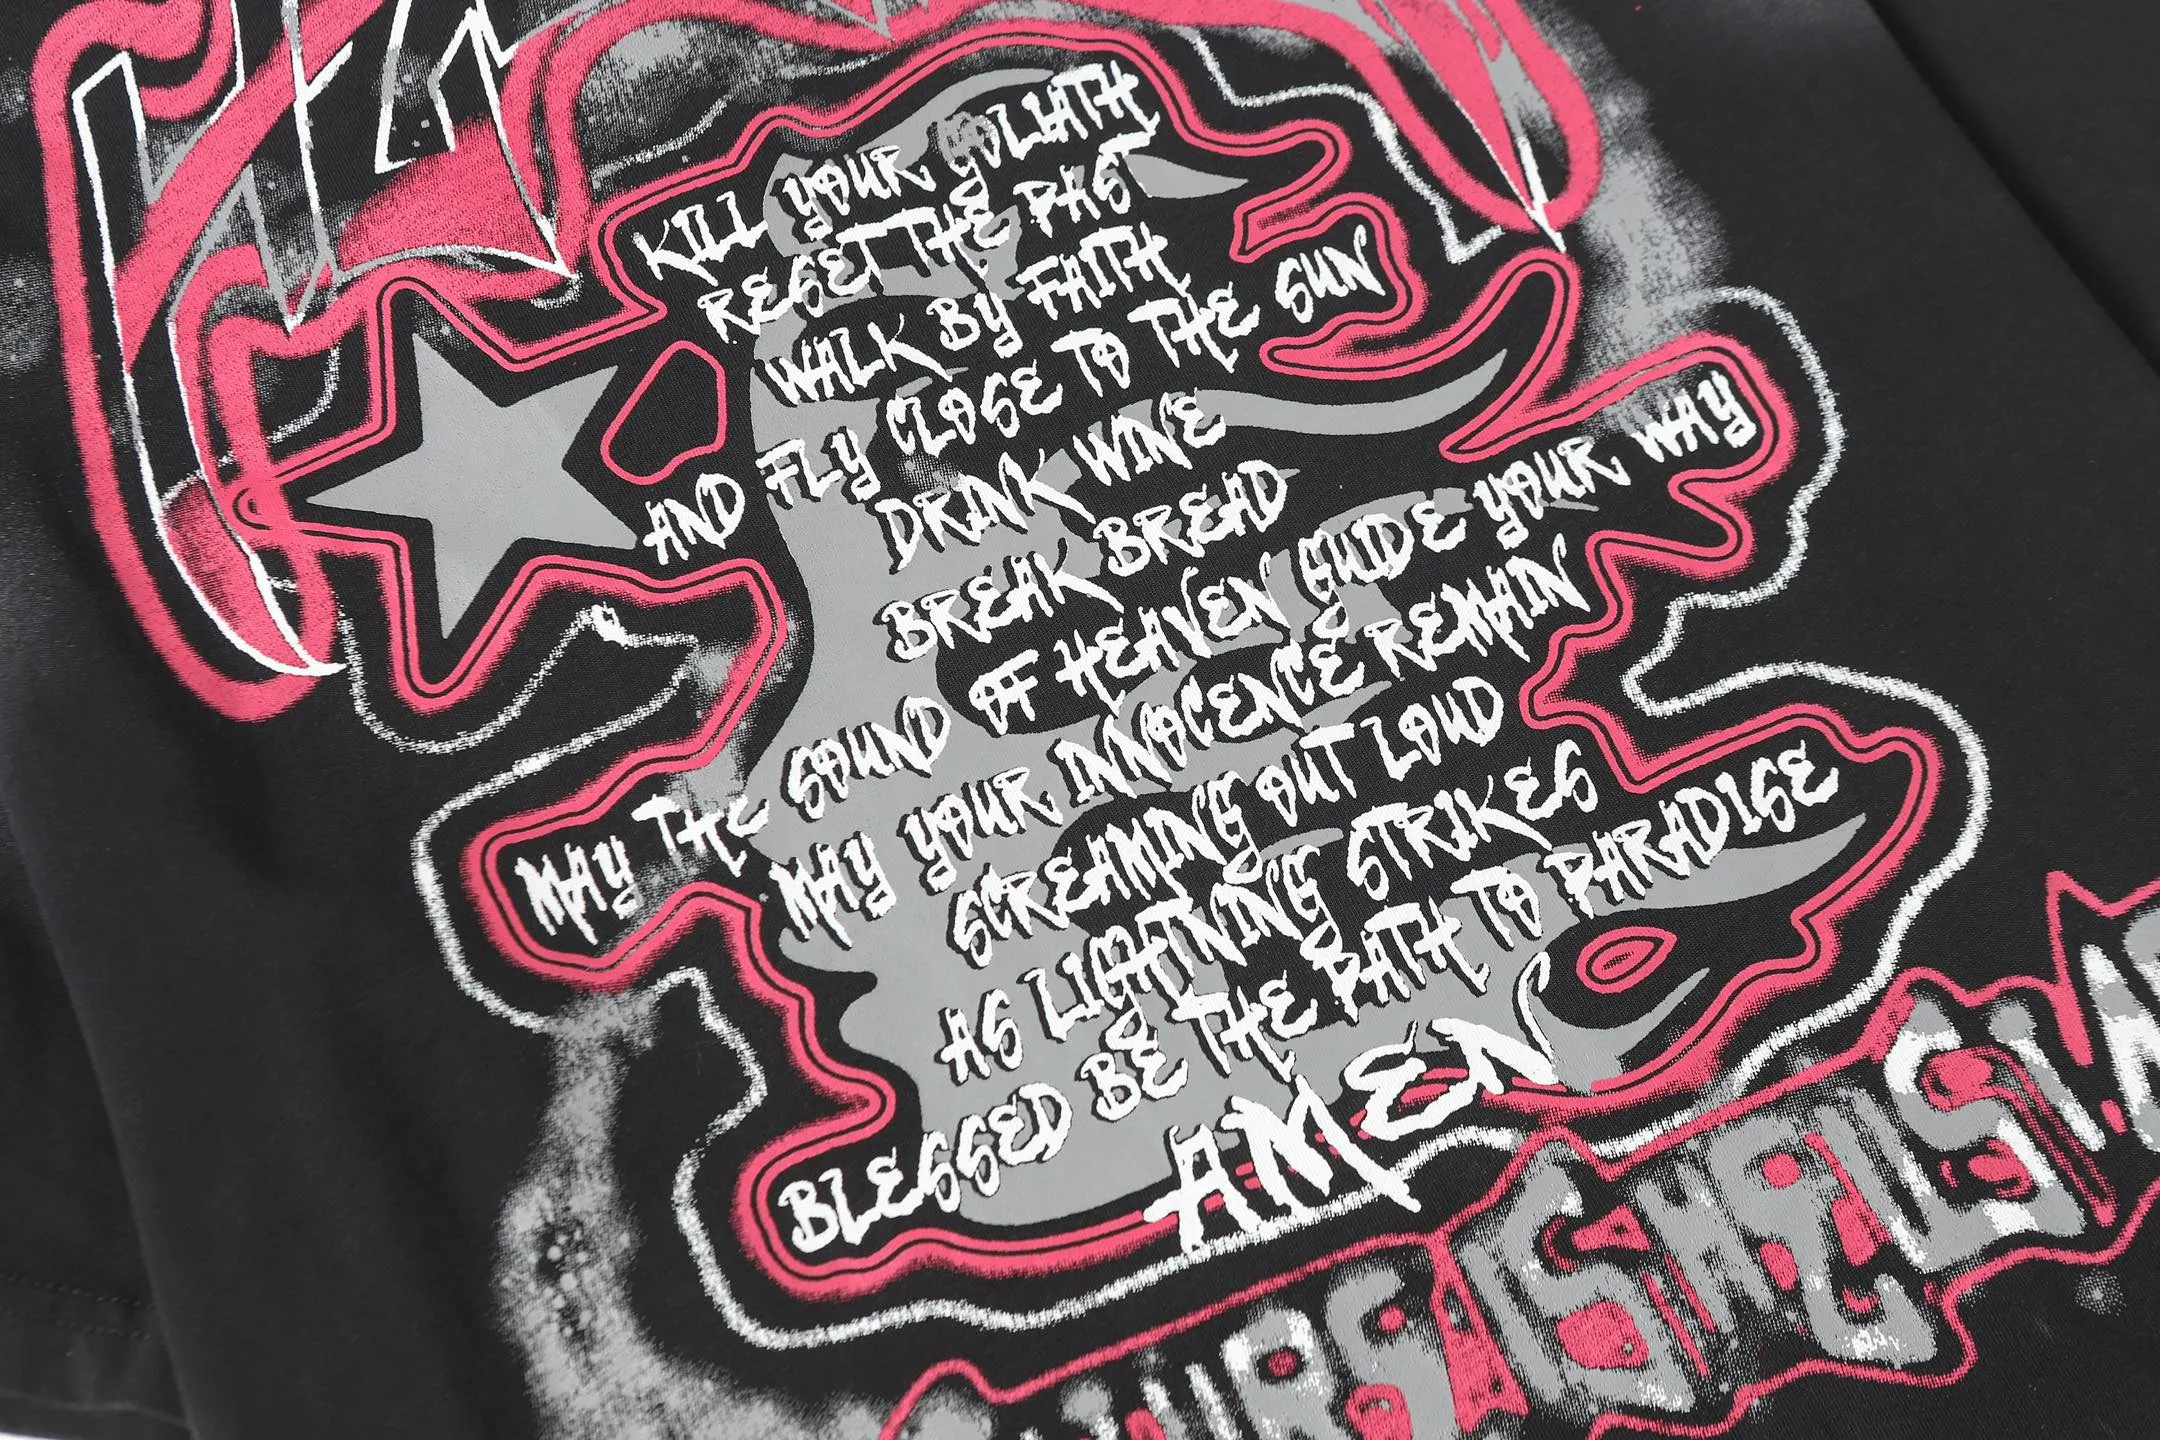 KILL YOUR GOLIATH
RESET THE PAST
WALK BY FAITH
AND FLY CLOSE TO THE SUN
DRINK WINE
BREAK BREAD
MAY THE SOUND OF HEAVEN GUIDE YOUR WAY
MAY YOUR INNOCENCE REMAIN
SCREAMING OUT LOUD
AS LIGHTNING STRIKES
BLESSED BE THE PATH TO PARADISE
AMEN